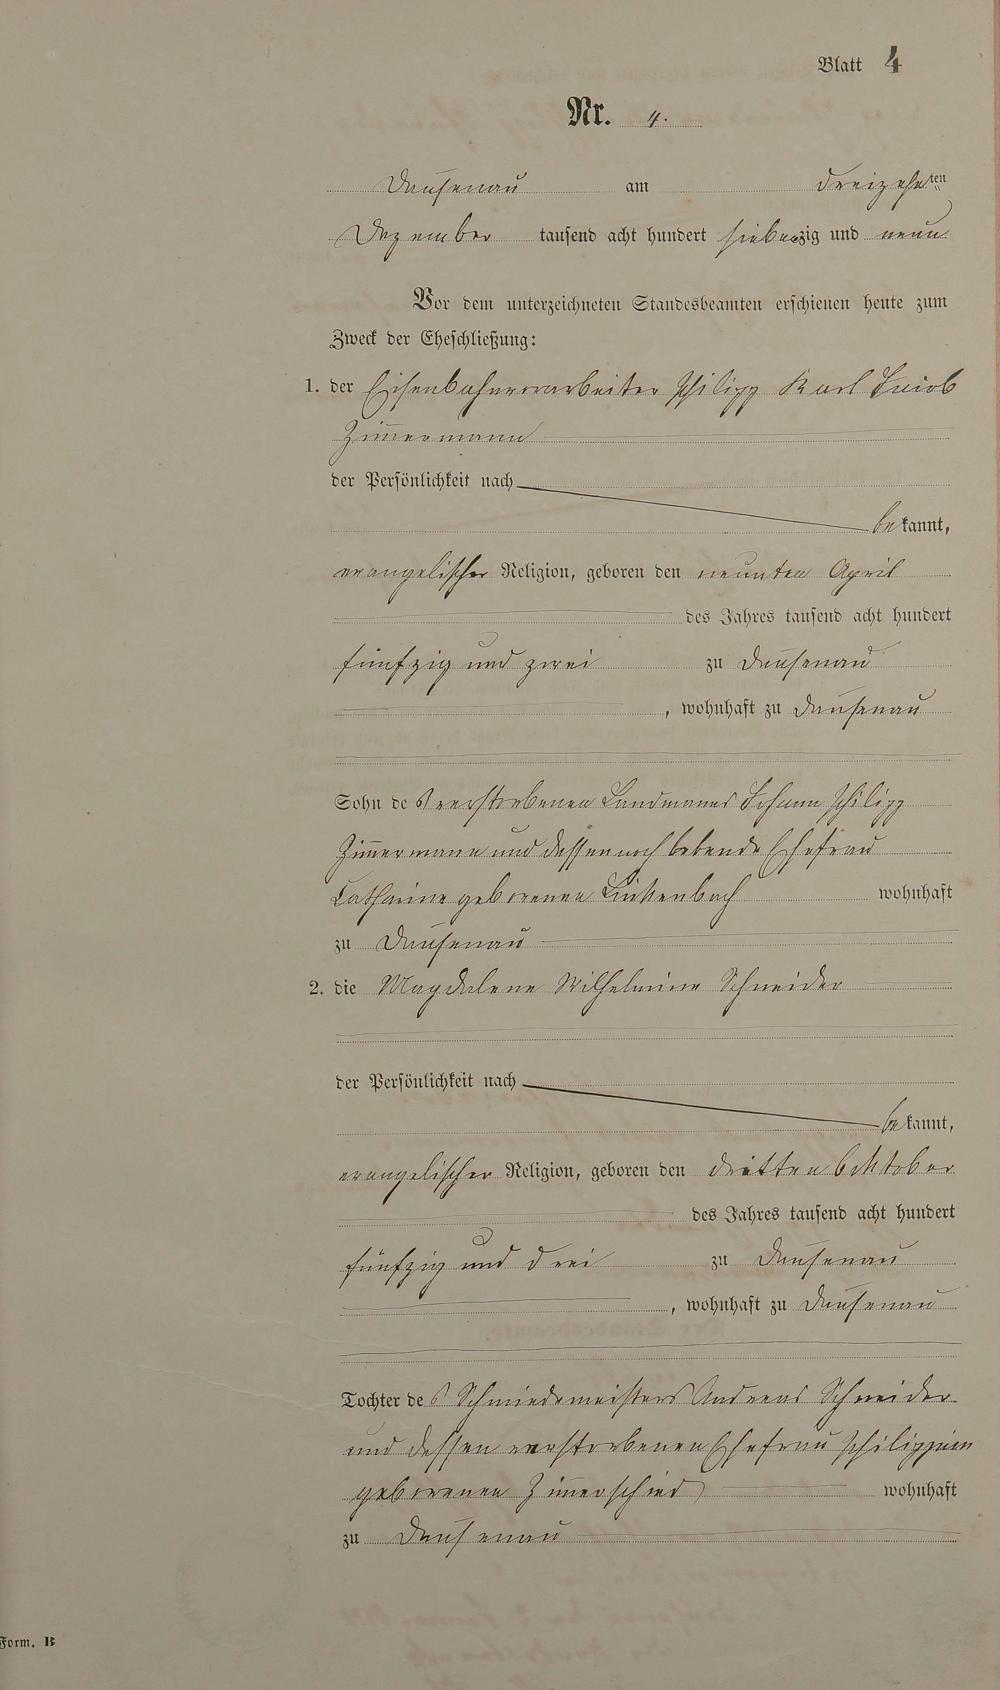 Blatt 4
Nr. 4.
Dausenau am dreizehnten
Dezember tausend acht hundert siebenzig und neun
Vor dem unterzeichneten Standesbeamten erschienen heute zum
Zweck der Eheschließung:
1. der Eisenbahnvorarbeiter Philipp Karl Jacob
Zimmermann
der Persönlichkeit nach
bekannt,
evangelischer Religion, geboren den neunten April
des Jahres tausend acht hundert
fünfzig und zwei zu Dausenau
, wohnhaft zu Dausenau
Sohn des verstorbenen Landmanns Johann Philipp
Zimmermann und dessen noch lebende Ehefrau
Catharine geborenen Linkenbach wohnhaft
zu Dausenau
2. die Magdalene Wilhelmine Schneider
der Persönlichkeit nach
bekannt,
evangelischer Religion, geboren den dritten Oktober
des Jahres tausend acht hundert
fünfzig und drei zu Dausenau
, wohnhaft zu Dausenau
Tochter des Schmiedemeisters Andreas Schneider
und dessen verstorbenen Ehefrau Philippine
geborenen Zimmerschied wohnhaft
zu Dausenau
Form. B